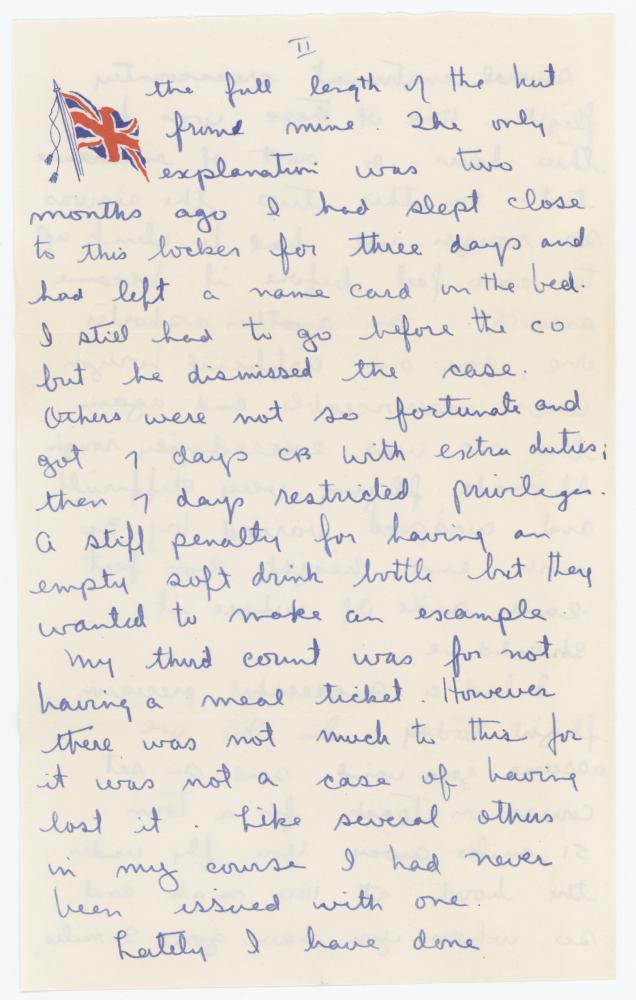 II
the full length of the hut
from mine. The only
explanation was two
months ago I had slept close
to this locker for three days and
had left a name card on the bed.
I still had to go before the CO
but he dismissed the case.
Others were not so fortunate and
got 7 days CB with extra duties;
then 7 days restricted privileges.
A stiff penalty for having an
empty soft drink bottle but they
wanted to make an example
My third count was for not
having a meal ticket. However
there was not much to this for
it was not a case of having
lost it. Like several others
in my course I had never
been issued with one.
Lately I have done